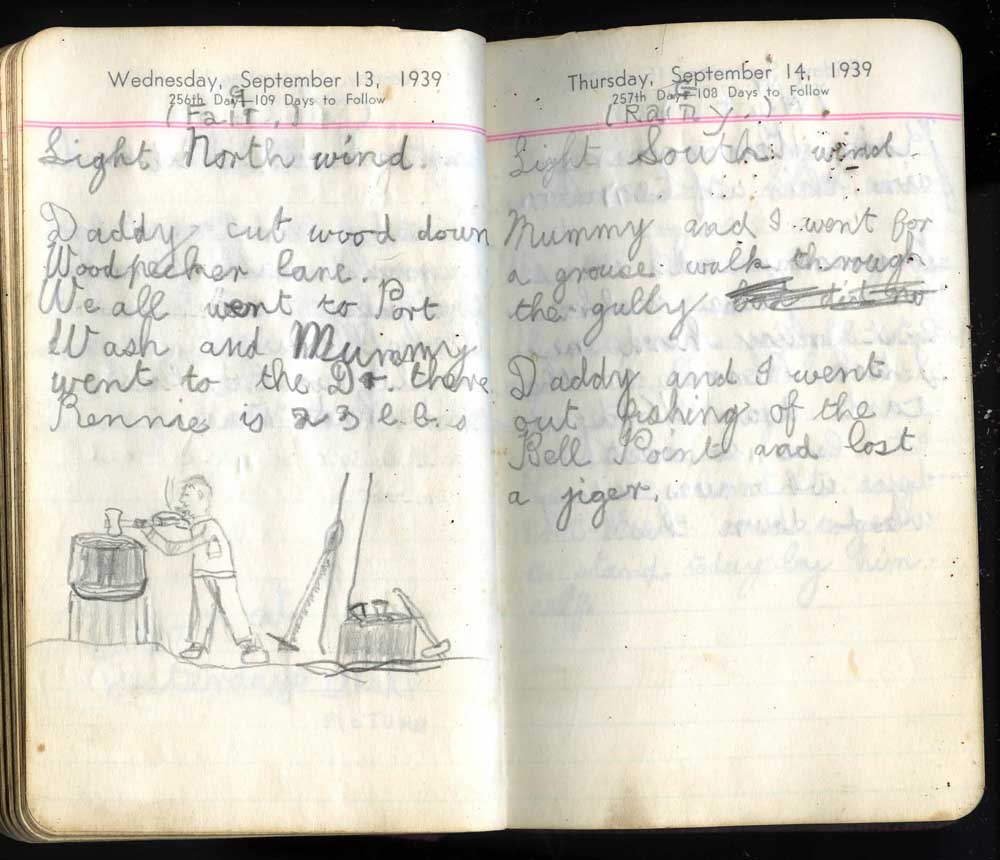 Wednesday, September 13, 1939
256th Day—109 Days to Follow
(Fair.)
Light North wind.
Daddy cut wood down
Woodpecker lane.
We all went to Port
Wash and Mummy
went to the Dr. there
Rennie is 23 l.b.s
Thursday, September 14, 1939
257th Day—108 Days to Follow
(Rainy.)
Light South wind.
Mummy and I went for
a grouse walk through
the gully
Daddy and I went
out fishing of the
Bell Point and lost
a jiger.